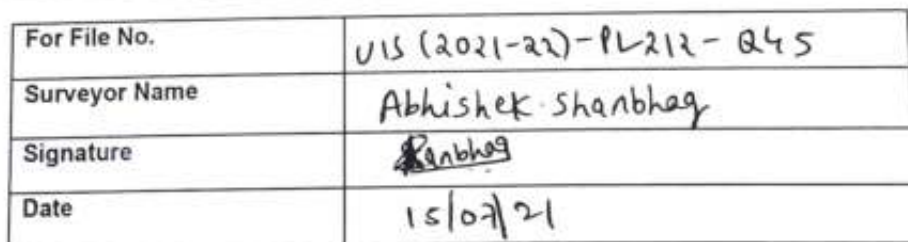 For File No. VIS (2021-22)-PL212-Q45
Surveyor Name Abhishek Shanbhag
Signature Shanbhag
Date 15/07/21